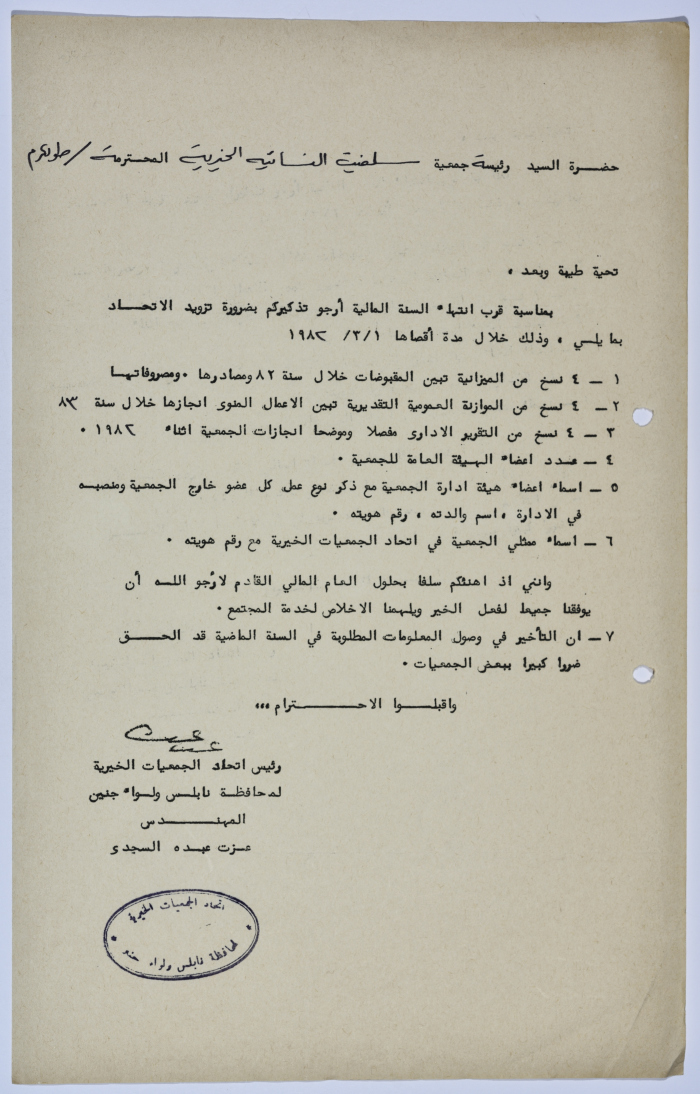 حضرة السيد رئيسة جمعية سلفيت النسائيه الخيرية المحترمة / طولكرم
تحية طيبة وبعد ،
بمناسبة قرب انتهاء السنة المالية أرجو تذكيركم بضرورة تزويد الاتحاد
بما يلي ، وذلك خلال مدة أقصاها ١ /٣/ ١٩٨٢
١ – ٤ نسخ من الميزانية تبين المقبوضات خلال سنة ٨٢ ومصادرها ٠ ومصروفاتها
٢ – ٤ نسخ من الموازنة العمومية التقديرية تبين الاعمال المنوى انجازها خلال سنة ٨٣
٣ – ٤ نسخ من التقرير الادارى مفصلا وموضحا انجازات الجمعية اثناء ١٩٨٢ ٠
٤ – عدد اعضاء الهيئة العامة للجمعية ٠
٥ – اسماء اعضاء هيئة ادارة الجمعية مع ذكر نوع عمل كل عضو خارج الجمعية ومنصبه
في الادارة ، اسم والدته ، رقم هويته ٠
٦ – اسماء ممثلي الجمعية في اتحاد الجمعيات الخيرية مع رقم هويته ٠
وانني اذ اهنئكم سلفا بحلول العام المالي القادم لأرجو الله أن
يوفقنا جميعا لفعل الخير ويلهمنا الاخلاص لخدمة المجتمع ٠
٧ – ان التأخير في وصول المعلومات المطلوبة في السنة الماضية قد الحق
ضررا كبيرا ببعض الجمعيات ٠
واقبلوا الاحترام ،،،
رئيس اتحاد الجمعيات الخيرية
لمحافظة نابلس ولواء جنين
المهندس
عزت عبده السجدى
اتحاد الجمعيات الخيرية
لمحافظة نابلس ولواء جنين